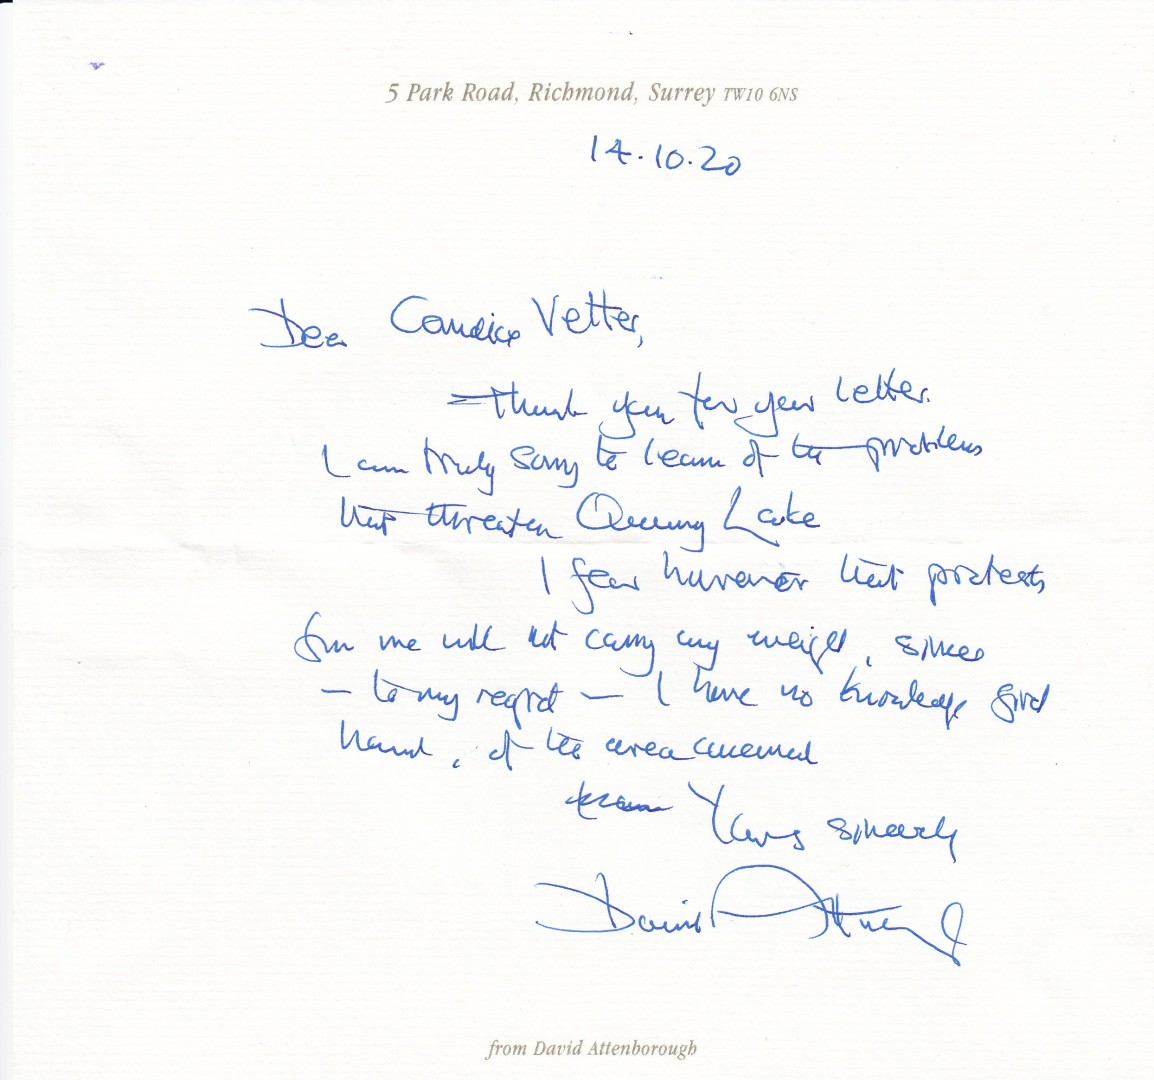 5 Park Road, Richmond, Surrey TW10 6NS
14.10.20
Dear Candice Vetter,
Thank you for your letter.
I am truly sorry to learn of the problems
that threaten Quarry Lake
I fear however that protests
from me will not carry any weight, since
– to my regret – I have no knowledge first
hand, of the area concerned
Yours sincerely
David Attenborough
from David Attenborough